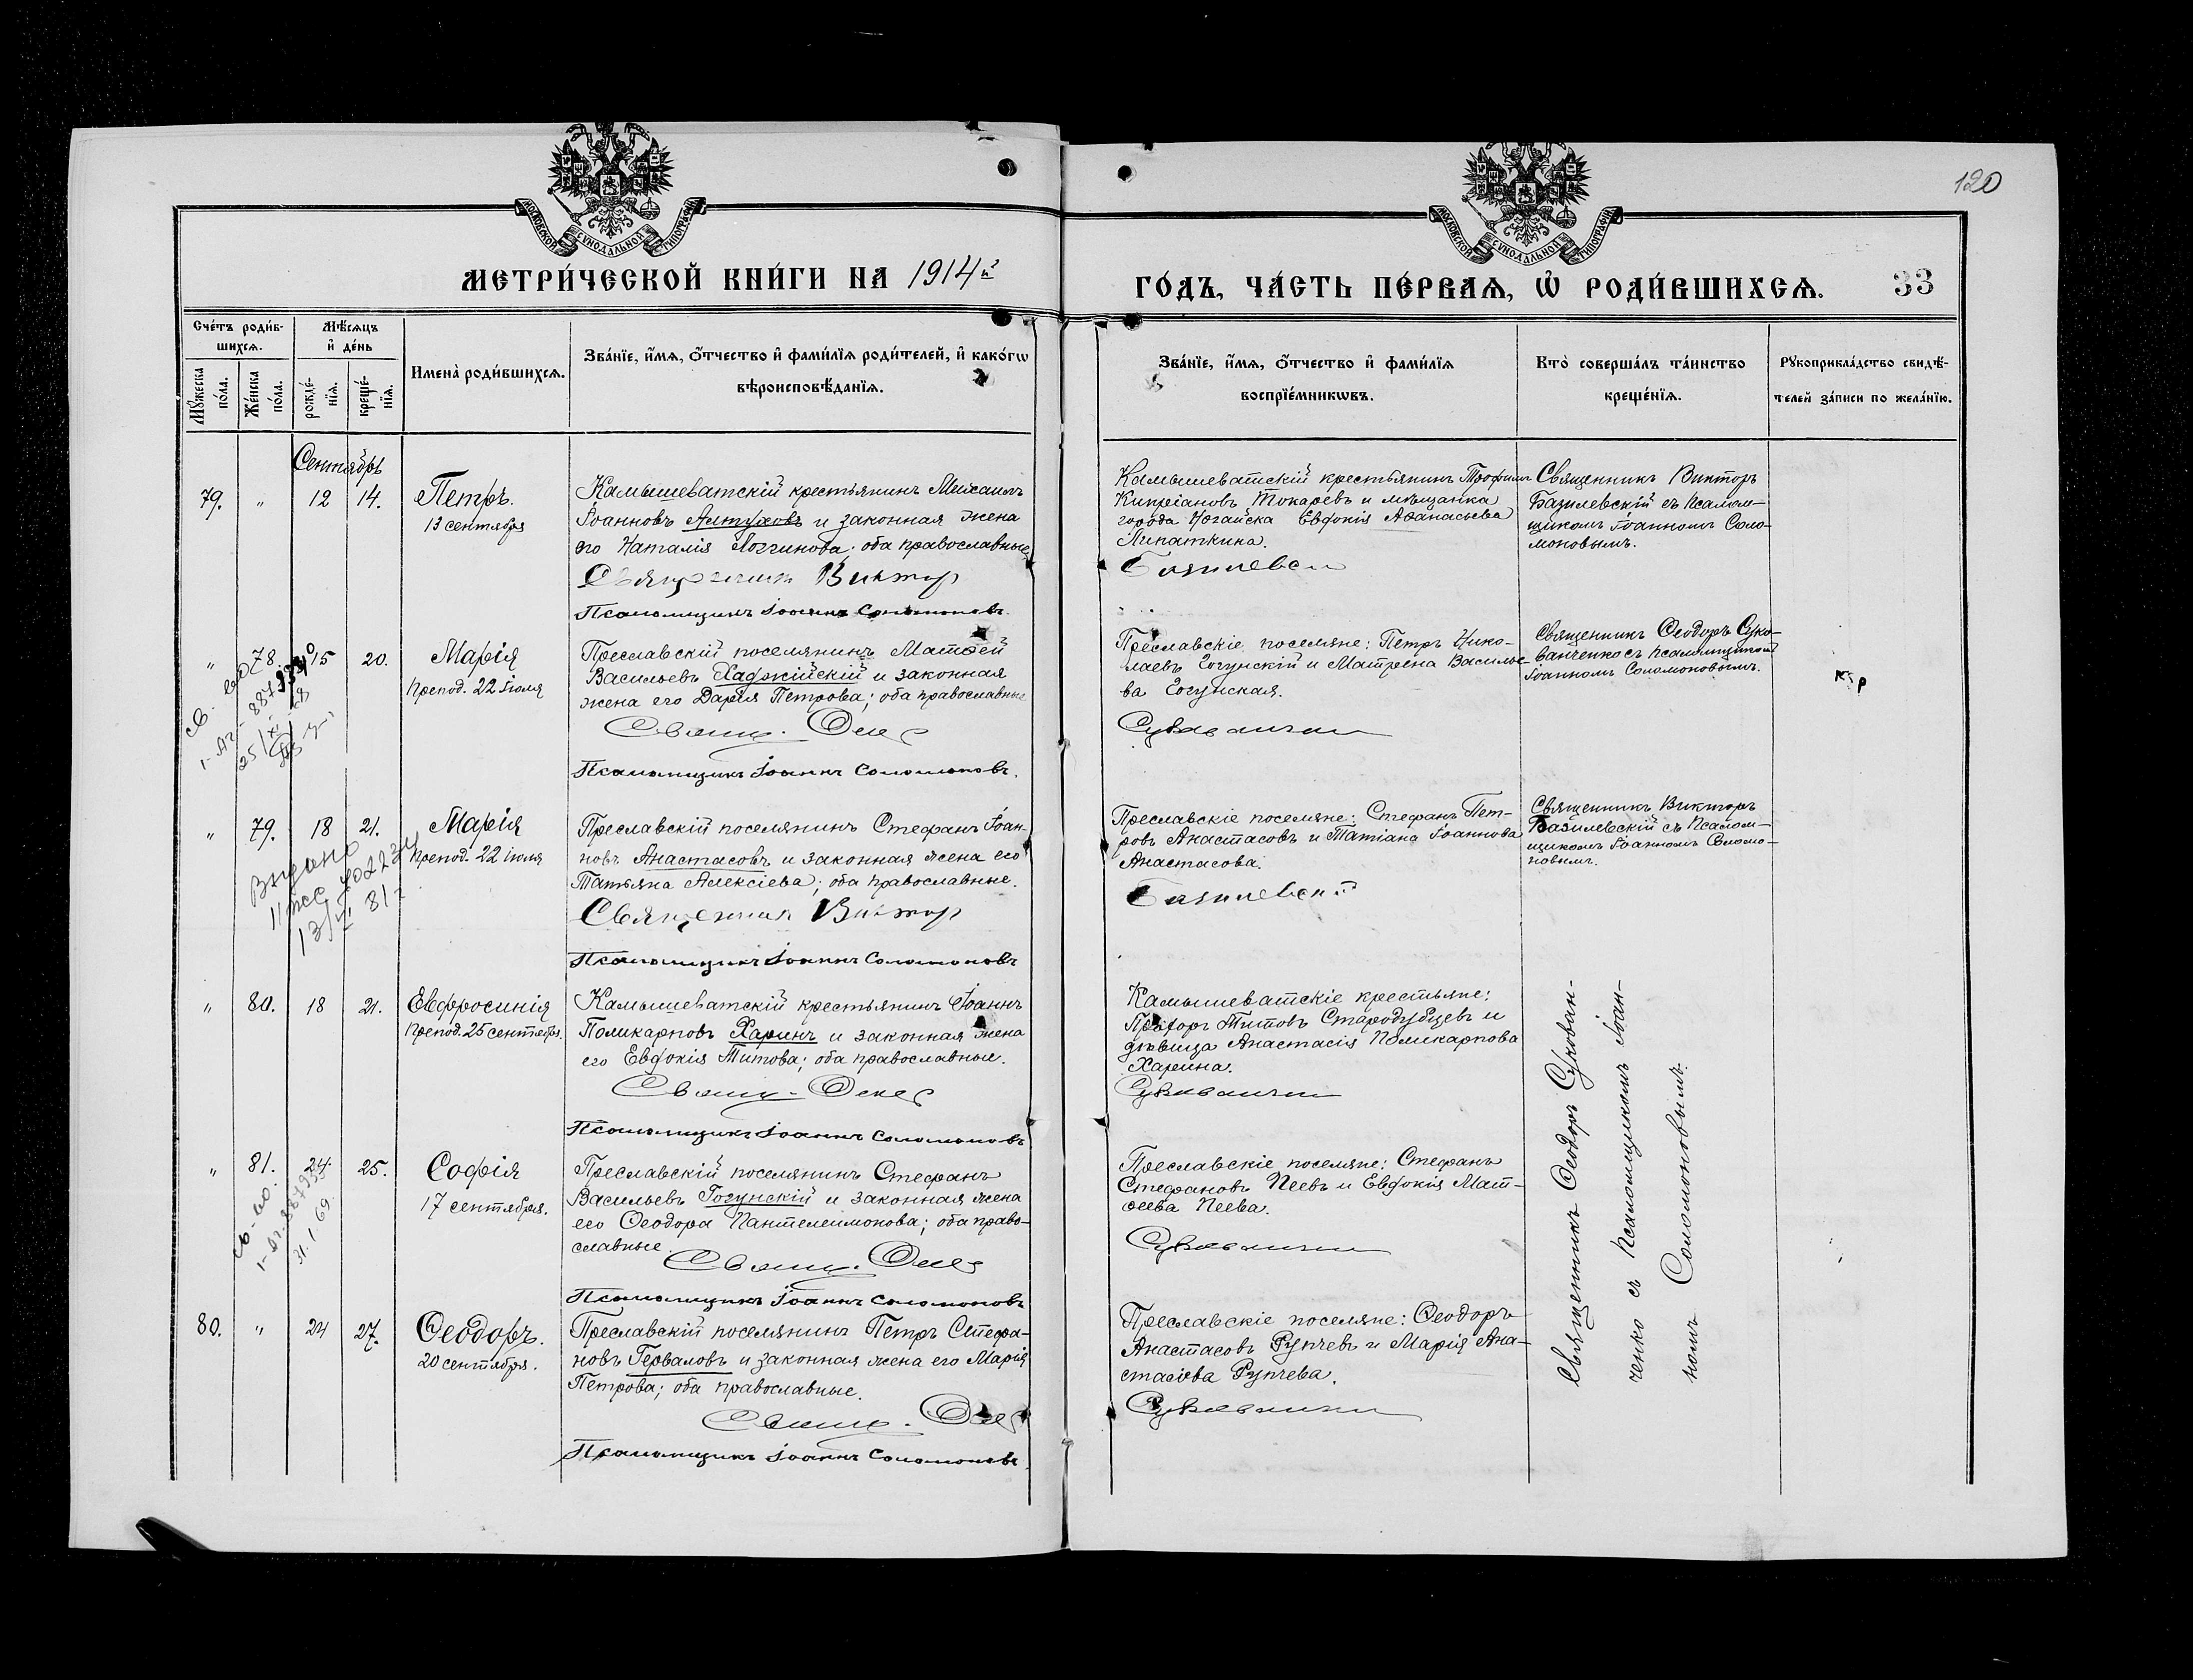 120
МОСКОВСКОЙ СѴНОДАЛЬНОЙ ТИПОГРАФІИ
МОСКОВСКОЙ СѴНОДАЛЬНОЙ ТИПОГРАФІИ
МЕТРИ́ЧЕСКОЙ КНИ́ГИ НА 1914й
ГО́ДЪ, ЧА́СТЬ ПЕ́РВАѦ, Ѡ҆ РОДИ́ВШИХСѦ. 33
Сче́тъ роди́в-
шихсѧ.
Мꙋ́жеска
по́ла.
Же́нска
по́ла.
Мѣ́сѧцъ
и҆ де́нь
рожде́-
нїѧ.
креще́-
нїѧ.
Имена̀ роди́вшихсѧ.
Зва́нїе, и҆́мѧ, ѻ҆́тчество и҆ фами́лїѧ роди́телей, и҆ како́гѡ
вѣроисповѣ́данїѧ.
Зва́нїе, и҆́мѧ, ѻ҆́тчество и҆ фами́лїѧ
воспрїе́мникѡвъ.
Кто̀ соверша́лъ та́инство
креще́нїѧ.
Рꙋкоприкла́дство свидѣ́-
телей за́писи по жела́нїю.
Сентябрь
79. " 12 14. Петръ.
13 сентября
Камышеватскій крестьянинъ Мисаилъ
Іоанновъ Алтуховъ и законная жена
его Наталія Логгинова; оба православные.
Священникъ Виктор
Псаломщикъ Іоаннъ Соломоновъ.
Камышеватскій крестьянинъ Трофимъ
Кипріановъ Токаревъ и мѣщанка
города Ногайска Евфокія Аѳанасьева
Липаткина.
Базилевск
Священникъ Викторъ
Базилевскій съ псалом-
щикомъ Іоанномъ Соло-
моновымъ.
" 78. 15 20. Марія
препод. 22 іюля
Преславскій поселянинъ Матѳей
Васильевъ Хаджійскій и законная
жена его Дарія Петрова; оба православные
Свящ. Ѳео
Псаломщикъ Іоаннъ Соломоновъ.
Преславскіе поселяне: Петръ Нико-
лаевъ Гогунскій и Матрена Василье-
ва Гогунская.
Сукованчен
Священникъ Ѳеодоръ Суко-
ванченко съ псаломщикомъ
Іоанномъ Соломоновымъ.
" 79. 18 21. Марія
препод. 22 іюля
Выдано
Преславскій поселянинъ Стефанъ Іоан-
новъ Анастасовъ и законная жена его
Татьяна Алексіева; оба православные.
Священник Виктор
Псаломщикъ Іоаннъ Соломоновъ
Преславскіе поселяне: Стефанъ Пет-
ровъ Анастасовъ и Татіана Іоаннова
Анастасова.
Базилевскій
Священникъ Викторъ
Базилевскій съ псалом-
щикомъ Іоанномъ Соломо-
новымъ.
" 80. 18 21. Евфросинія
препод. 25 сентября.
Камышеватскій крестьянинъ Іоаннъ
Поликарповъ Харинъ и законная жена
его Евфокія Титова; оба православные.
Свящ. Ѳео
Псаломщикъ Іоаннъ Соломоновъ
Камышеватскіе крестьяне:
Титовъ Стародубцевъ и
дѣвица Анастасія Поликарпова
Харина.
Сукованчен
" 81. 24. 25. Софія
17 сентября.
31.1.69
Преславскій поселянинъ Стефанъ
Васильевъ Гогунскій и законная жена
его Ѳеодора Пантелеимонова; оба право-
славные.
Свящ. Ѳео
Псаломщикъ Іоаннъ Соломоновъ
Преславскіе поселяне: Стефанъ
Стефановъ Пеевъ и Евфокія Мат-
ѳеева Пеева.
Сукованчен
80. " 24 27. Ѳеодоръ.
20 сентября.
Преславскій поселянинъ Петръ Стефа-
новъ Герваловъ и законная жена его Марія
Петрова; оба православные.
Свящ. Ѳео
Псаломщикъ Іоаннъ Соломоновъ.
Преславскіе поселяне: Ѳеодоръ
Анастасовъ Рупчевъ и Марія Ана-
стасіева Рупчева.
Сукованчен
Священникъ Ѳеодоръ Сукован-
ченко съ псаломщикомъ Іоан-
номъ Соломоновымъ.